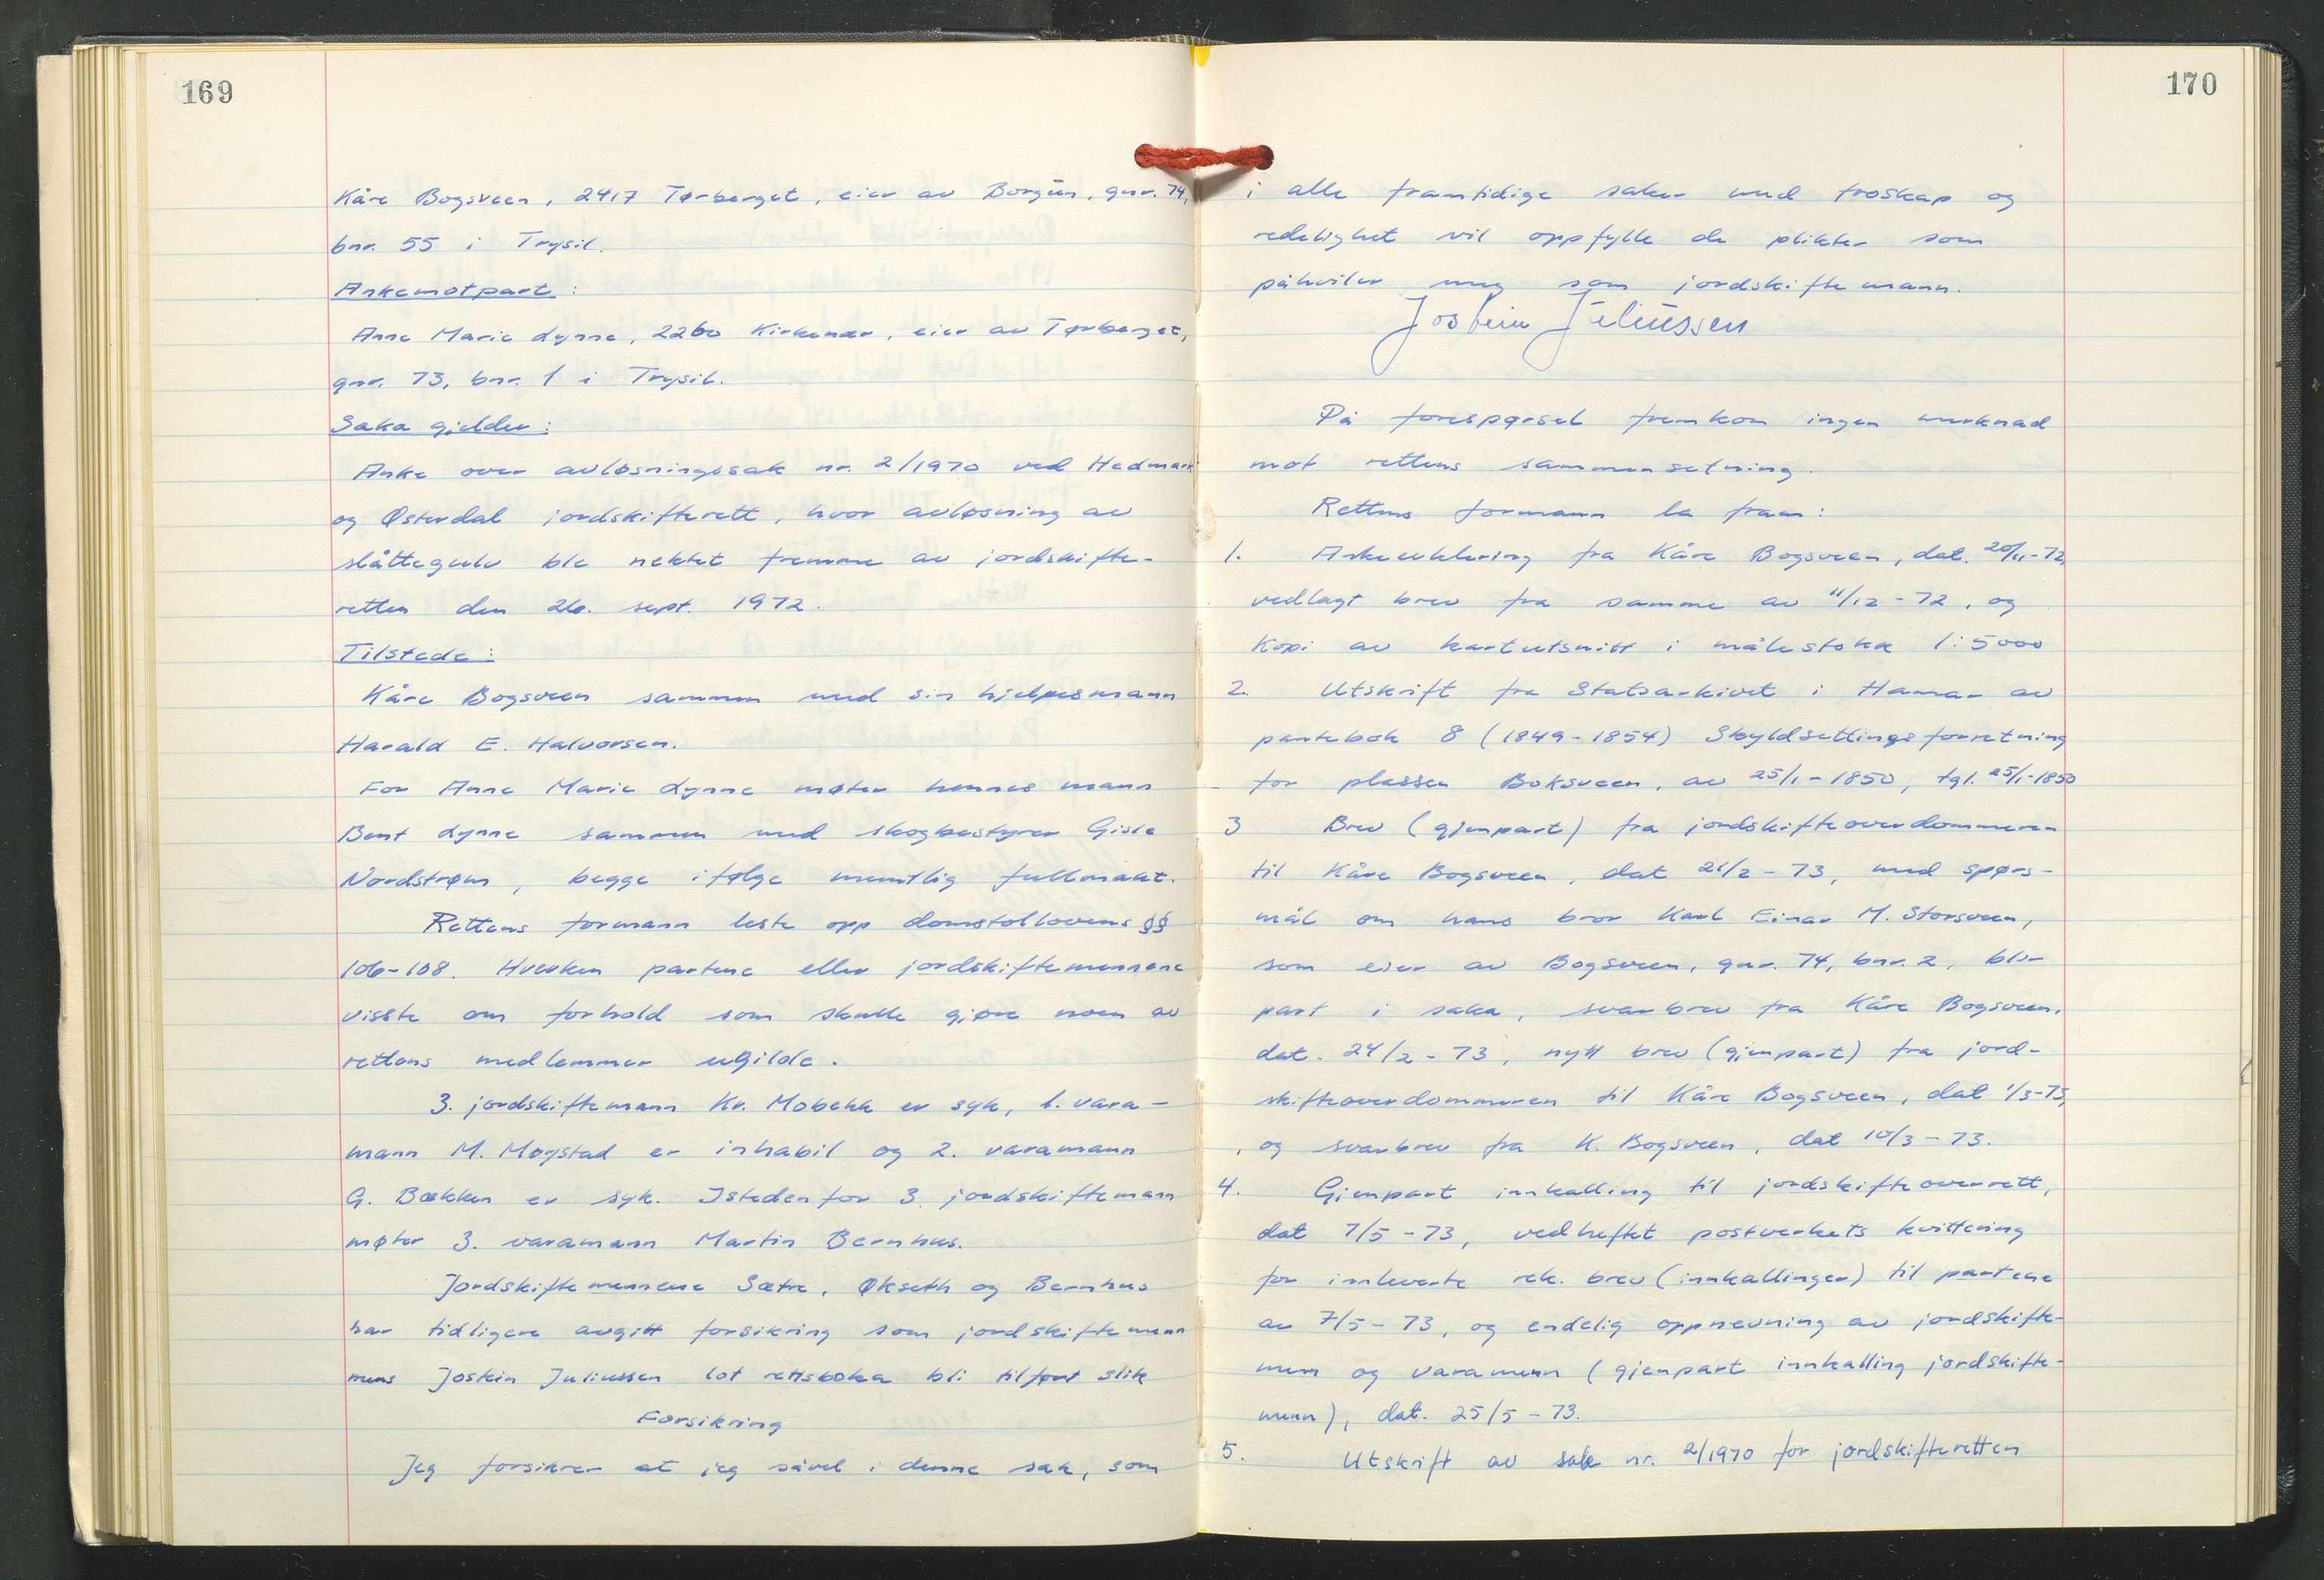 169
Kåre Bogsveen, 2417 Tørberget, eier av Borgun, gnr. 74,
bnr. 55 i Trysil.
Ankemotpart:
Anne Marie Lynne, 2260 Kirkenær, eier av Tørberget,
gnr. 73, bnr. 1 i Trysil.
Saka gjelder:
Anke over avløsningssak nr. 2/1970 ved Hedmark
og Østerdal jordskifterett, hvor avløsning av
slåttegulv ble nektet fremme av jordskifte-
retten den 26. sept. 1972.
Tilstede:
Kåre Bogsveen sammen med sin hjelpesmann
Harald E. Halvorsen.
For Anne Marie Lynne møter hennes mann
Bent Lynne sammen med skogbestyrer Gisle
Nordstrøm, begge ifølge muntlig fullmakt.
Rettens formann leste opp domstollovens §§
106-108. Hverken partene eller jordskiftemennene
visste om forhold som skulle gjøre noen av
rettens medlemmer ugilde.
3. jordskiftemann Kr. Mobekk er syk, 1. vara-
mann M. Mogstad er inhabil og 2. varamann
G. Bækken er syk. Istedenfor 3. jordskiftemann
møter 3. varamann Martin Bernhus.
Jordskiftemennene Sætre, Økseth og Bernhus
har tidligere avgitt forsikring som jordskiftemenn
mens Jostein Juliussen lot rettsboka bli tilført slik
Forsikring
Jeg forsikrer at jeg såvel i denne sak, som
170
i alle framtidige saker med troskap og
redelighet vil oppfylle de plikter som
påhviler meg som jordskiftemann.
Jostein Juliussen
På forespørsel fremkom ingen merknad
mot rettens sammensetning.
Rettens formann la fram:
1. Ankeerklæring fra Kåre Bogsveen, dat. 20/11-72,
vedlagt brev fra samme av 11/12-72, og
kopi av kartutsnitt i målestokk 1:5000
2. Utskrift fra Statsarkivet i Hamar av
pantebok 8 (1849-1854) Skyldsettingsforretning
for plassen Boksveen, av 25/1-1850, tgl. 25/1-1850
3 Brev (gjenpart) fra jordskifteoverdommeren
til Kåre Bogsveen, dat 21/2-73, med spørs-
mål om hans bror Karl Einar M. Storsveen,
som eier av Bogsveen, gnr. 74, bnr. 2, blir
part i saka, svarbrev fra Kåre Bogsveen,
dat. 24/2-73, nytt brev (gjenpart) fra jord-
skifteoverdommeren til Kåre Bogsveen, dat 1/3-73,
og svarbrev fra K. Bogsveen, dat 10/3-73.
4. Gjenpart innkalling til jordskifteoverrett,
dat 7/5-73, vedheftet postverkets kvittering
for innleverte rek. brev (innkallinger) til partene
av 7/5-73, og endelig oppnevning av jordskifte-
menn og varamenn (gjenpart innkalling jordskifte-
menn), dat. 25/5-73.
5. Utskrift av sak nr. 2/1970 for jordskifteretten